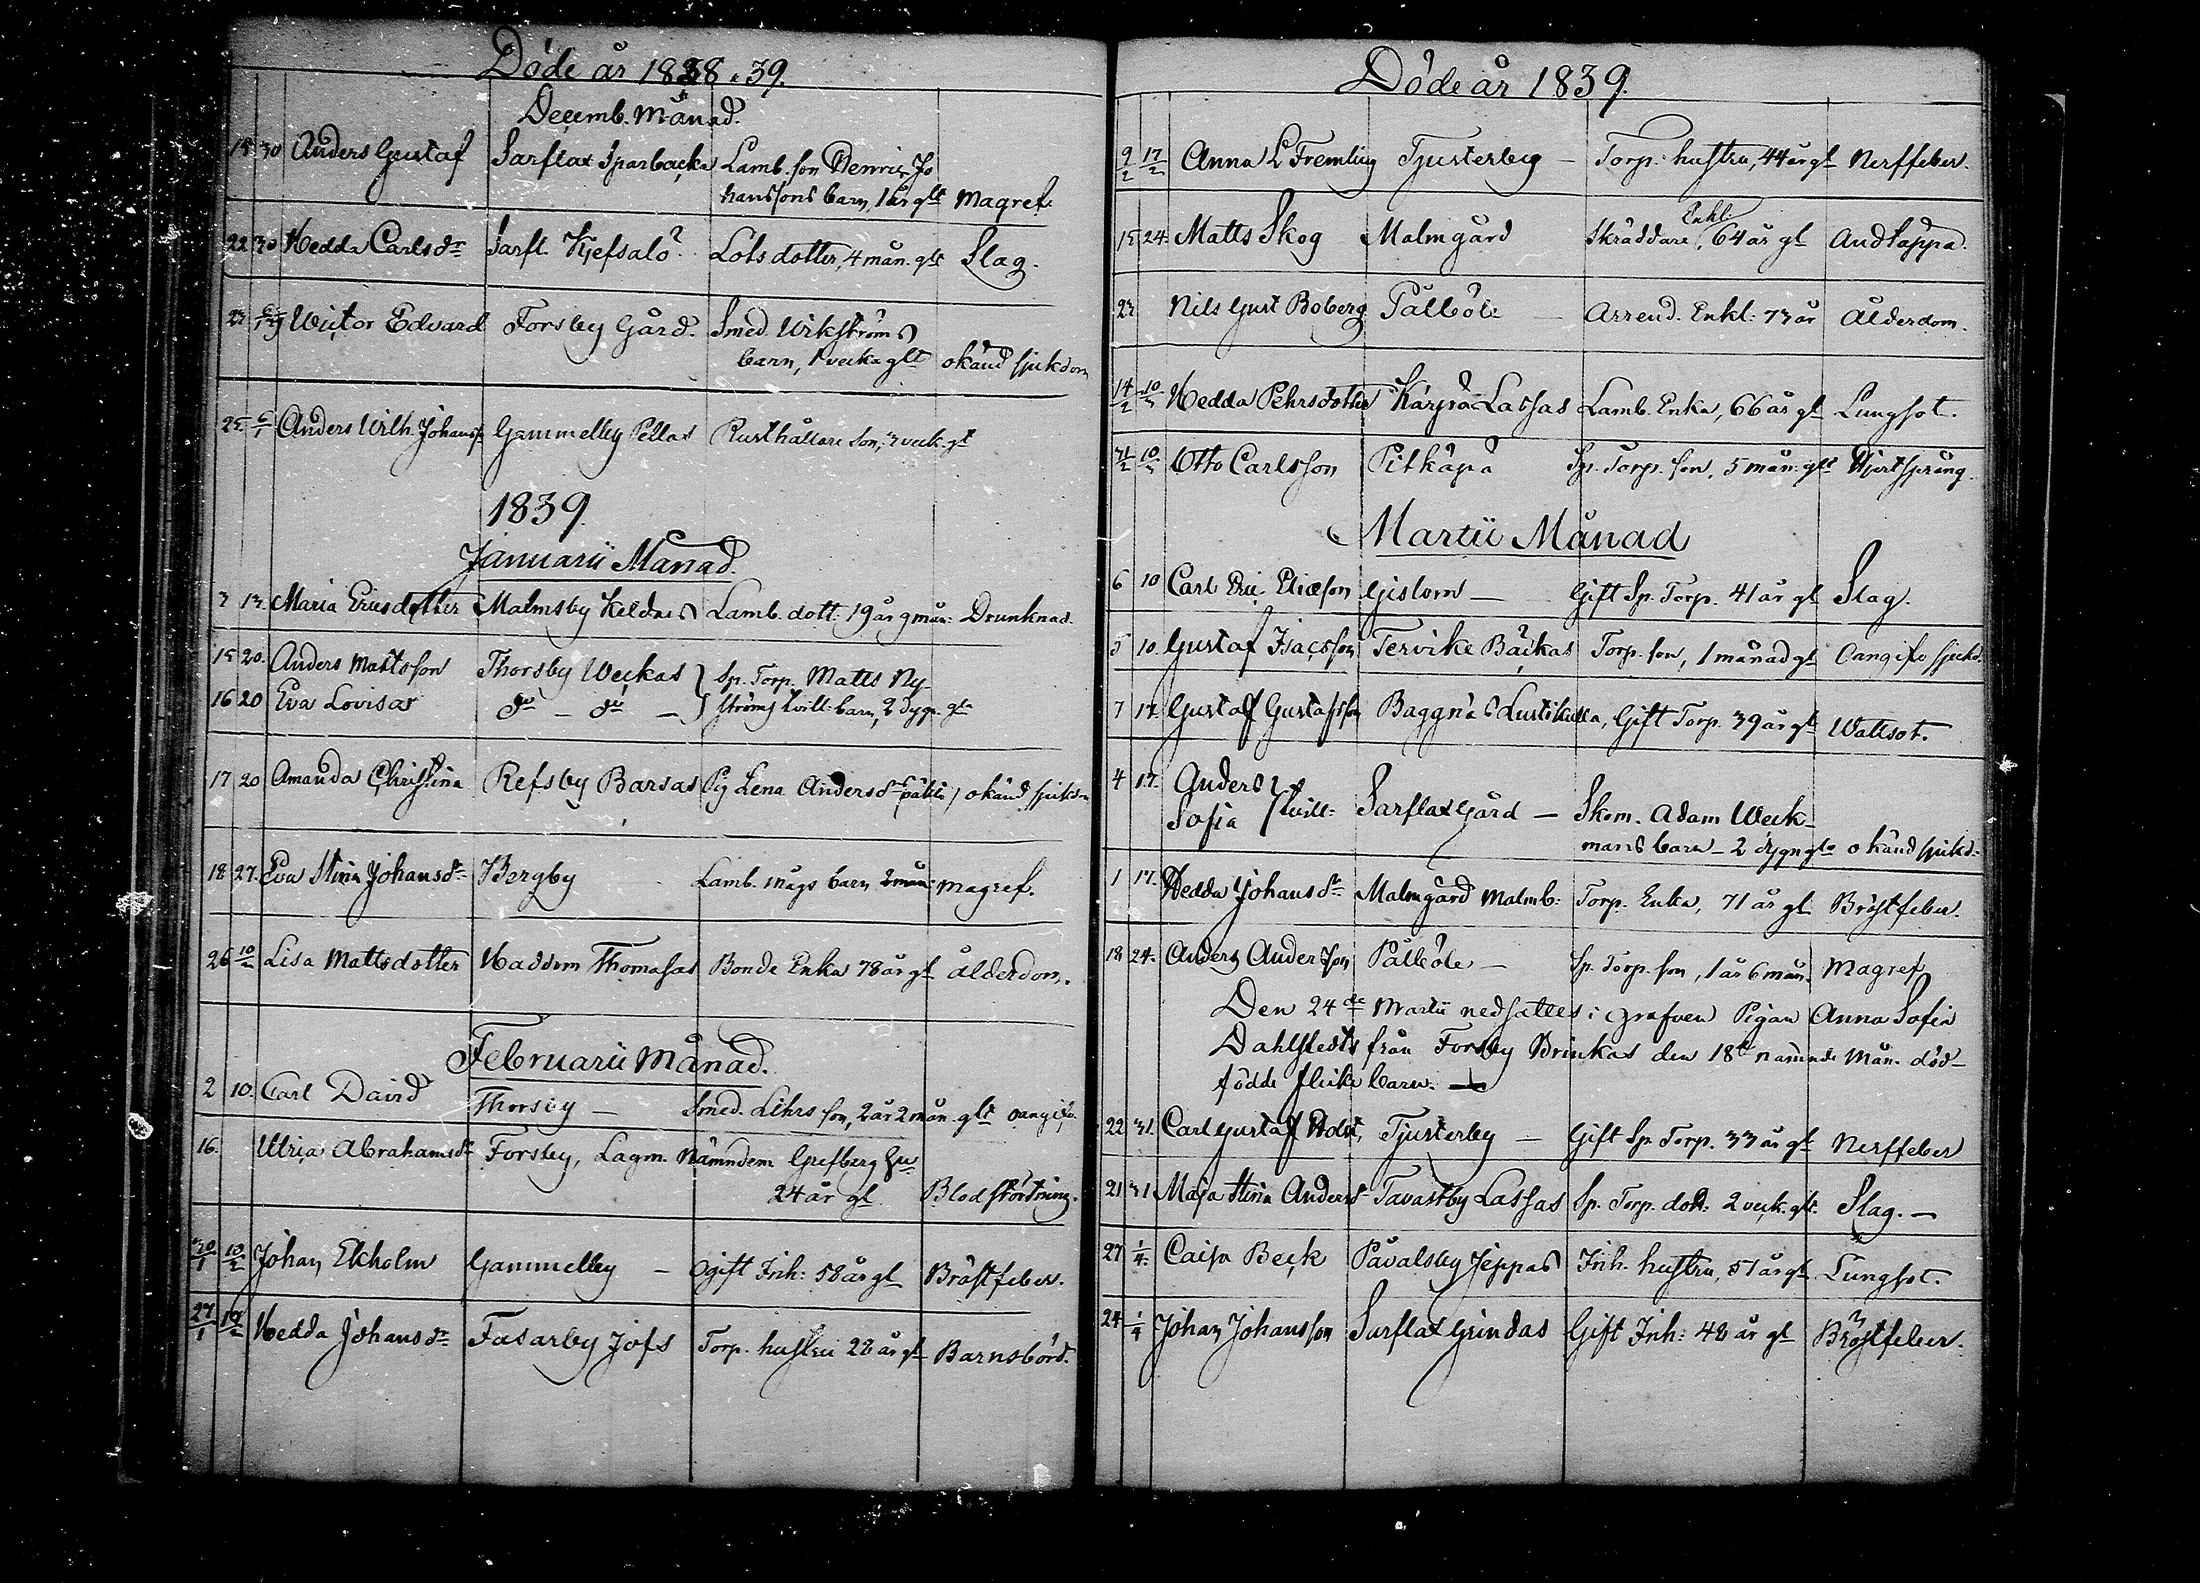 Döde år 1838 & 39.
Decemb. Månad.
15 30 Anders Gustaf Sarflax Sparbacka Lamb. son Henric Jo
hanssons barn, 1 år glt Magref.
22 30 Hedda Carlsdr Sarfl. Kjefsalö Lots dotter, 4 mån. glt Slag.
23 Victor Edvard Forsby Gård. Smed. Wikströms
barn, 1 vecka glt okänd sjukdom
25 6/1 Anders Wilh. Johanss. Gammelby Pellas Rusthållare son, 3 veck. gt
1839.
Januarii Månad.
3 13. Maria Ericsdotter Malmsby Heldres Lamb. dott: 19 år 9 mån: Drunknad.
15 20. Anders Mattsson Thorsby Weckas Sp. Torp. Matts Ny-
16 20 Eva Lovisa do - do - ströms tvill: barn, 2 dygn gl
17 20 Amanda Christina Refsby Barsas Pig Lena Andersdr oäkta, okänd sjukd.
18 27. Eva Stina Johansdr Bergby Lamb. mågs barn 2 mån: magref.
26 10/2 Lisa Mattsdotter Haddom Thomasas Bonde Enka 78 år gl ålderdom.
Februarii Månad.
2 10. Carl David Thorsby — Smed. Lihrs son, 2 år 2 mån. glt oangifv.
16. Ulrica Abrahamsdr Forsby, Lagm. Nämndem Grefberg hu
24 år gl Blodstörtning.
30/1 10/2 Johan Ekholm Gammelby — Ogift Inh: 58 år gl Bröstfeber.
27/1 Hedda Johansdr Fasarby Jofs Torp. hustru 28 år gl Barnsbörd.
Döde år 1839.
9/2 17/2 Anna L Fremling Tjusterby — Torp. hustru, 44 år gl Nerffeber.
15 24. Matts Skog Malmgård Skräddare Enkl: 64 år gl Andtäppa.
23 Nils Gust Boberg Pålböle — Arrend. Enkl: 73 år Ålderdom.
14/2 10/3 Hedda Pehrsdotter Kärpå Lassas Lamb. Enka, 66 år gl Lungsot.
10/3 Otto Carlsson Pitkäpä Sp. Torp. son, 5 mån: glt Hjertsprång.
Martii Månad
6 10 Carl Eric Ericsson Gislom — Gift Sp. Torp. 41 år gl Slag.
5 10. Gustaf Isacsson Tervike Bäckas Torp. son, 1 månad gl Oangifv sjukd.
7 17. Gustaf Gustafsson Baggnäs Lustikulla, Gift Torp. 39 år gl Wattsot.
4 17. Anders
Sofia tvill: Sarflax Gård — Skom. Adam Weck-
mans barn - 2 dygn gla okänd sjukd:
1 17. Hedda Johansdr Malmgård Malmb: Torp. Enka, 71 år gl Bröstfeber.
18 24. Anders Andersson Pålböle — Sp. Torp. son, 1 år 6 mån. Magref
Den 24de Martii nedsattes i grafven Pigan Anna Sofia
Dahlstedts från Forsby Brinkas den 18de namnde Mån. död-
födde flicke barn. —
22 31. Carl Gustaf Holst, Tjusterby — Gift Sp Torp. 33 år gl Nerffeber
21 31 Maja Stina Andersdr Tavastby Lassas Sp. Torp. dott: 2 veck. glt Slag. —
27 1/4. Caisa Beck Påvalsby Jeppas Inh. hustru, 51 år gl Lungsot.
24 1/4 Johan Johansson Sarflax Grindas Gift Inh: 48 år gl Bröstfeber.